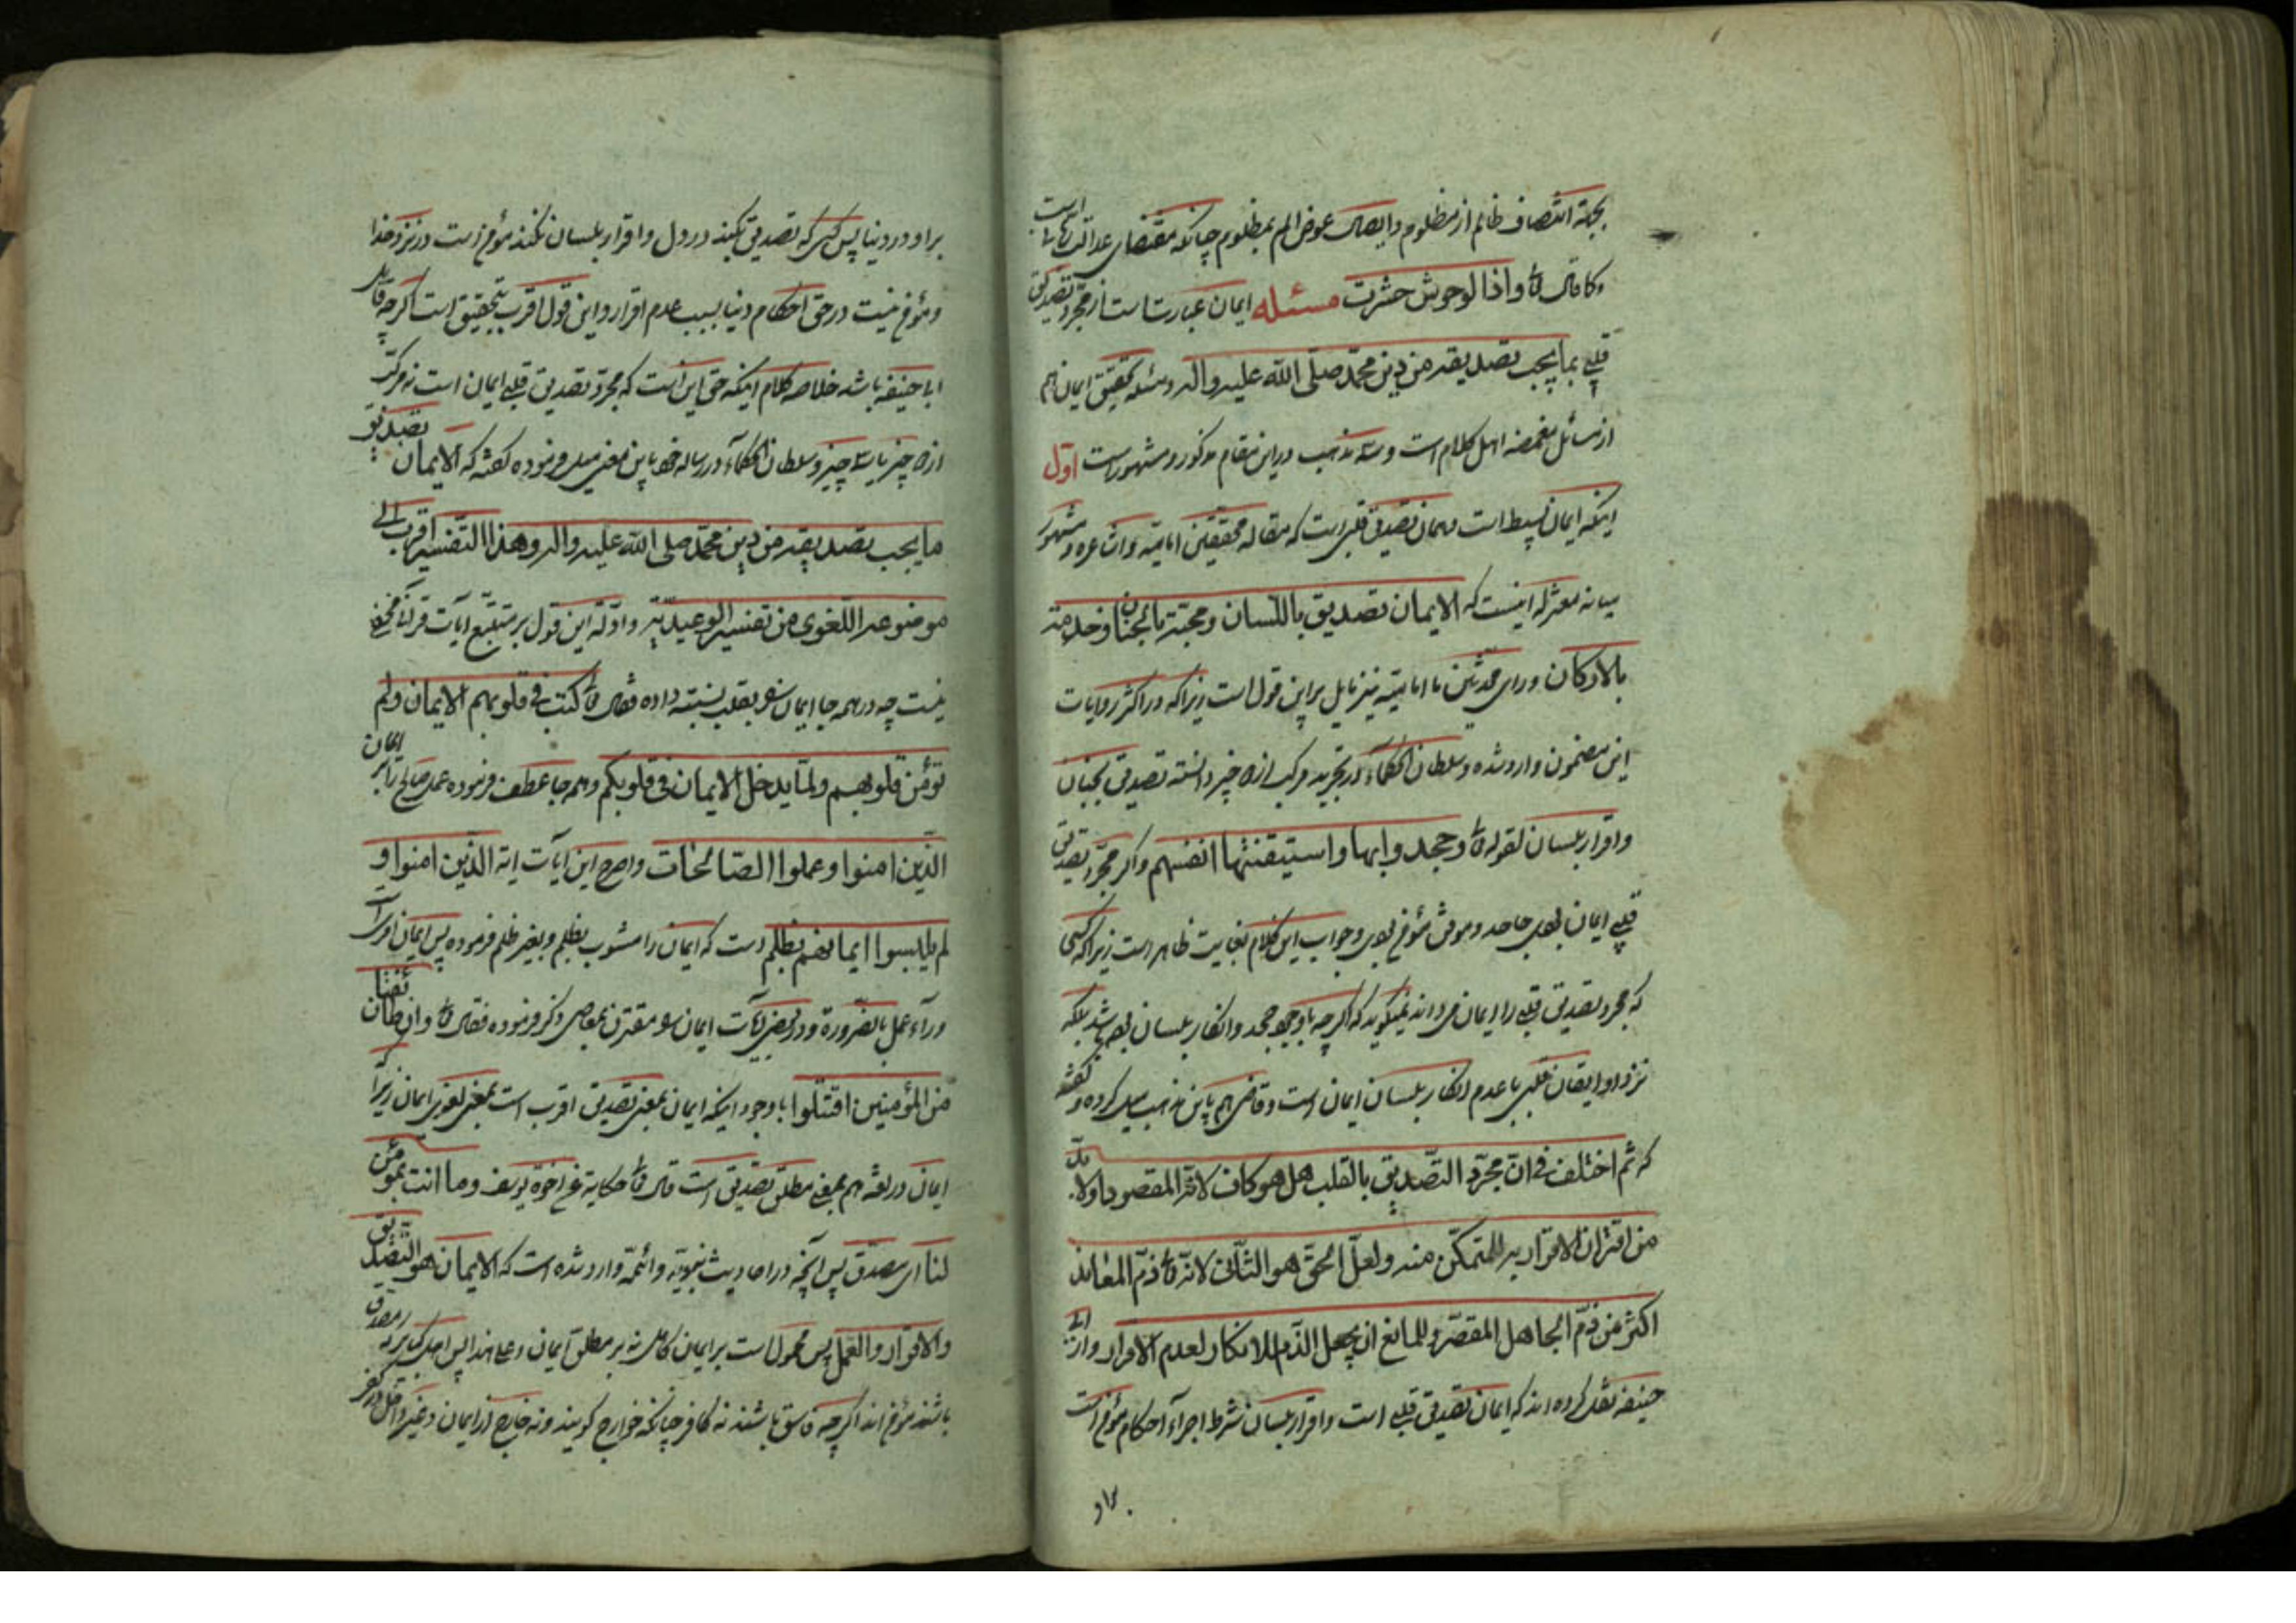 بجهة انتصاف ظالم از مظلوم وایصال عوض الم بمظلوم چنانکه مقتضای عدالت است
و کما قال تع واذا الوحوش حشرت مسئله ایمان عبارتست از مجرد تصدیق
قلبی بما یجب تصدیقه من دین محمد صلی الله علیه واله ومسئله تحقیق ایمان هم
از مسائل غمضه اهل کلام است وسه مذهب دراین مقام مذکور ومشهور است اول
اینکه ایمان بسیط است وهمان تصدیق قلبی است که مقاله محققین امامیه واشاعره ومشهور
میانه معتزله اینست که الایمان تصدیق باللسان ومحبته بالجنان وخدمته
بالارکان ورای محدثین ما امامیه نیز مایل براین قول است زیراکه در اکثر روایات
این مضمون وارد شده وسلطان الحکماء در تجرید مرکب از دو چیز دانسته تصدیق بجنان
واقرار بلسان لقوله تع وجحدوا بها واستیقنتها انفسهم واکر مجرد تصدیق
قلبی ایمان بودی جاحد وموقن مؤمن بودی وجواب این کلام بغایت ظاهر است زیراکه کسی
که مجرد تصدیق قلبی را ایمان میداند نمیکوید که اکرچه با وجود جحد وانکار بلسان بوده باشد بلکه
نزد او ایقان قلبی با عدم انکار بلسان ایمان است وقاضی هم باین مذهب میل کرده وکفته
که ثم اختلف فی ان مجرد التصدیق بالقلب هل هو کاف لانه المقصود اولا بد
من اقتران الاقرار به للمتمکن منه ولعل الحق هو الثانی لانه تع ذم المعاند
اکثر من ذم الجاهل المقصر وللمانع ان یجعل الذم للانکار لعدم الاقرار واز ابی
حنیفه نقل کرده اند که ایمان تصدیق قلبی است واقرار بلسان شرط اجراء احکام مؤمن است
براو
براو در دنیا پس کسی که تصدیق بکند در دل واقرار بلسان نکند مؤمن است در نزد خدا
ومؤمن نیست در حق احکام دنیا بسبب عدم اقرار واین قول اقرب بتحقیق است اکرچه قایلش
ابا حنیفه باشد خلاصه کلام اینکه حق این است که مجرد تصدیق قلبی ایمان است نه مرکب
از دو چیز یا سه چیز وسلطان الحکماء در رساله خود باین معنی میل فرموده کفته که الایمان تصدیق
ما یجب تصدیقه من دین محمد صلی الله علیه واله وهذا التفسیر اقرب الی
موضوعه اللغوی من تفسیر الوعیدیة وادله این قول بر متتبع آیات قرآنی مخفی
نیست چه در همه جا ایمان را بقلب نسبت داده فقال تع کتب فی قلوبهم الایمان ولم
تؤمن قلوبهم ولما یدخل الایمان فی قلوبکم وهمه جا عطف فرموده عمل صالح را بر ایمان
الذین امنوا وعملوا الصالحات واصرح این آیات ایه الذین امنوا و
لم یلبسوا ایمانهم بظلم است که ایمان را مشوب بظلم وبغیر ظلم فرموده پس ایمان امریست
وراء عمل بالضرورة ودر بعضی آیات ایمان را مقترن بمعاصی ذکر فرموده فقال تع وان طائفتان
من المؤمنین اقتتلوا با وجود اینکه ایمان بمعنی تصدیق اقرب است بمعنی لغوی ایمان زیرا که
ایمان در لغة هم بمعنی مطلق تصدیق است قال تع حکایة عن اخوة یوسف وما انت بمؤمن
لنا ای مصدق پس آنچه در احادیث نبویه وائمه وارد شده است که الایمان هو التصدیق
والاقرار والعمل پس محمول است بر ایمان کامل نه بر مطلق ایمان وعلی هذا پس اهل کبایر که مصدق
باشند مؤمن اند اکرچه فاسق باشند نه کافر چنانکه خوارج کویند ونه خارج از ایمان وغیر داخل در کفر